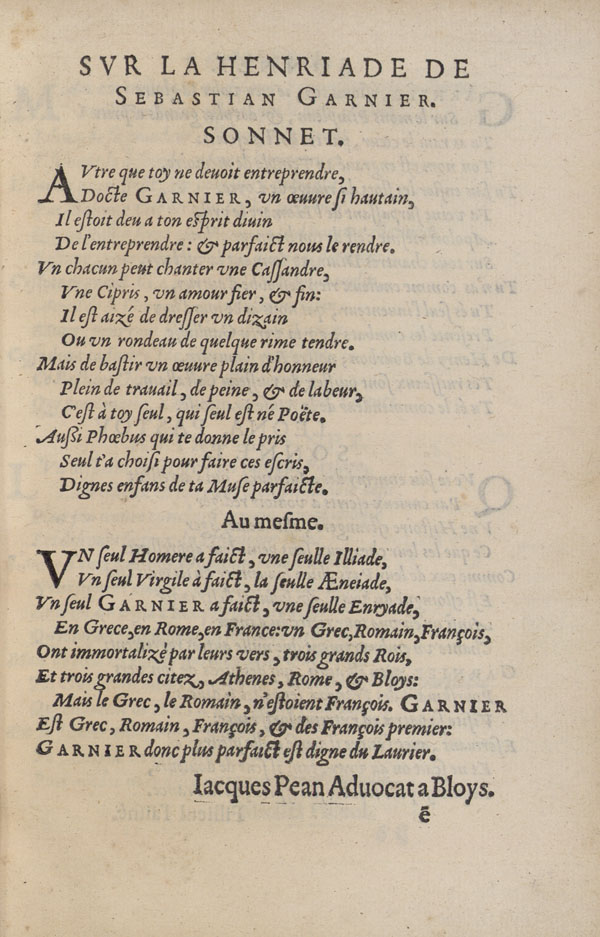 SVR LA HENRIADE DE
SEBASTIAN GARNIER.
SONNET.
AVtre que toy ne deuoit entreprendre,
Docte GARNIER, vn œuure ſi hautain,
Il eſtoit deu a ton eſprit diuin
De l'entreprendre : & parfaict nous le rendre.
Vn chacun peut chanter vne Caſſandre,
Vne Cipris, vn amour fier, & fin:
Il eſt aizé de dreſſer vn dizain
Ou vn rondeau de quelque rime tendre.
Mais de baſtir vn œuure plain d'honneur
Plein de trauail, de peine, & de labeur,
C'eſt à toy ſeul, qui ſeul eſt né Poëte.
Auſsi Phœbus qui te donne le pris
Seul t'a choiſi pour faire ces eſcris,
Dignes enfans de ta Muſe parfaicte.
Au meſme.
VN ſeul Homere a faict, vne ſeulle Illiade,
Vn ſeul Virgile à faict, la ſeulle Æneiade,
Vn ſeul GARNIER a faict, vne ſeulle Enryade,
En Grece, en Rome, en France: vn Grec, Romain, François,
Ont immortalizé par leurs vers, trois grands Rois,
Et trois grandes citez, Athenes, Rome, & Bloys:
Mais le Grec, le Romain, n'eſtoient François. GARNIER
Eſt Grec, Romain, François, & des François premier:
GARNIER donc plus parfaict eſt digne du Laurier.
Iacques Pean Aduocat a Bloys.
ẽ